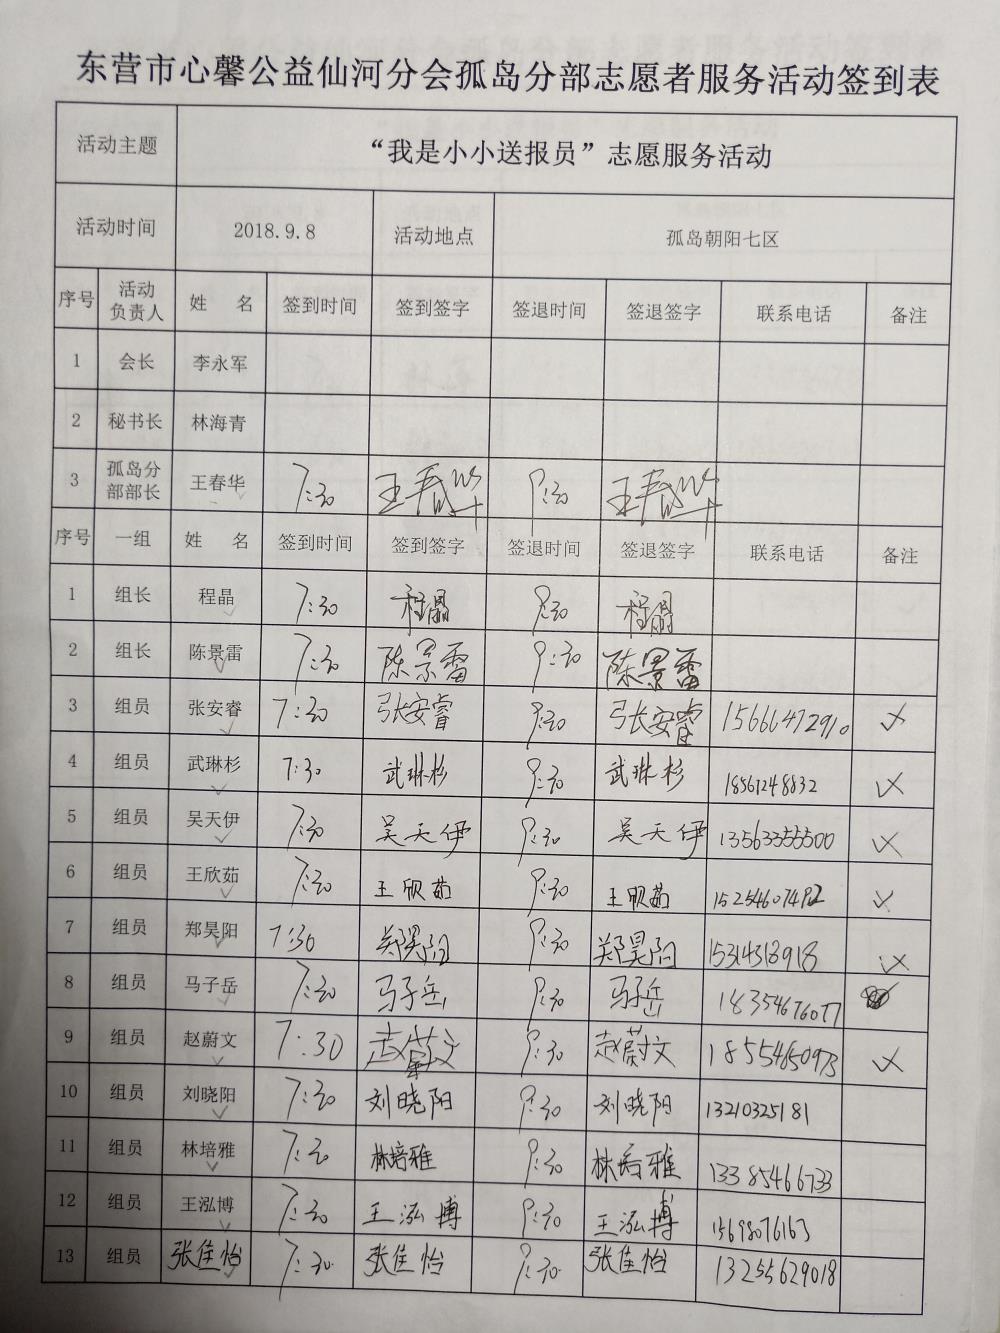 东营市心馨公益仙河分会孤岛分部志愿者服务活动签到表
活动主题 “我是小小送报员”志愿服务活动
活动时间 2018.9.8 活动地点 孤岛朝阳七区
序号 活动负责人 姓名 签到时间 签到签字 签退时间 签退签字 联系电话 备注
1 会长 李永军
2 秘书长 林海青
3 孤岛分部部长 王春华 7:30 王春华 9:30 王春华
序号 一组 姓名 签到时间 签到签字 签退时间 签退签字 联系电话 备注
1 组长 程晶 7:30 程晶 9:30 程晶
2 组长 陈景雷 7:30 陈景雷 9:30 陈景雷
3 组员 张安睿 7:30 张安睿 9:30 张安睿 15666472910
4 组员 武琳杉 7:30 武琳杉 9:30 武琳杉 18561248832
5 组员 吴天伊 7:30 吴天伊 9:30 吴天伊 13563355500
6 组员 王欣茹 7:30 王欣茹 9:30 王欣茹
7 组员 郑昊阳 7:30 郑昊阳 9:30 郑昊阳 15314318918
8 组员 马子岳 7:30 马子岳 9:30 马子岳 18354676077
9 组员 赵蔚文 7:30 赵蔚文 9:30 赵蔚文 18554650973
10 组员 刘晓阳 7:30 刘晓阳 9:30 刘晓阳 13210325181
11 组员 林培雅 7:30 林培雅 9:30 林培雅 13385466733
12 组员 王泓博 7:30 王泓博 9:30 王泓博 15698076163
13 组员 张佳怡 7:30 张佳怡 9:30 张佳怡 13255629018